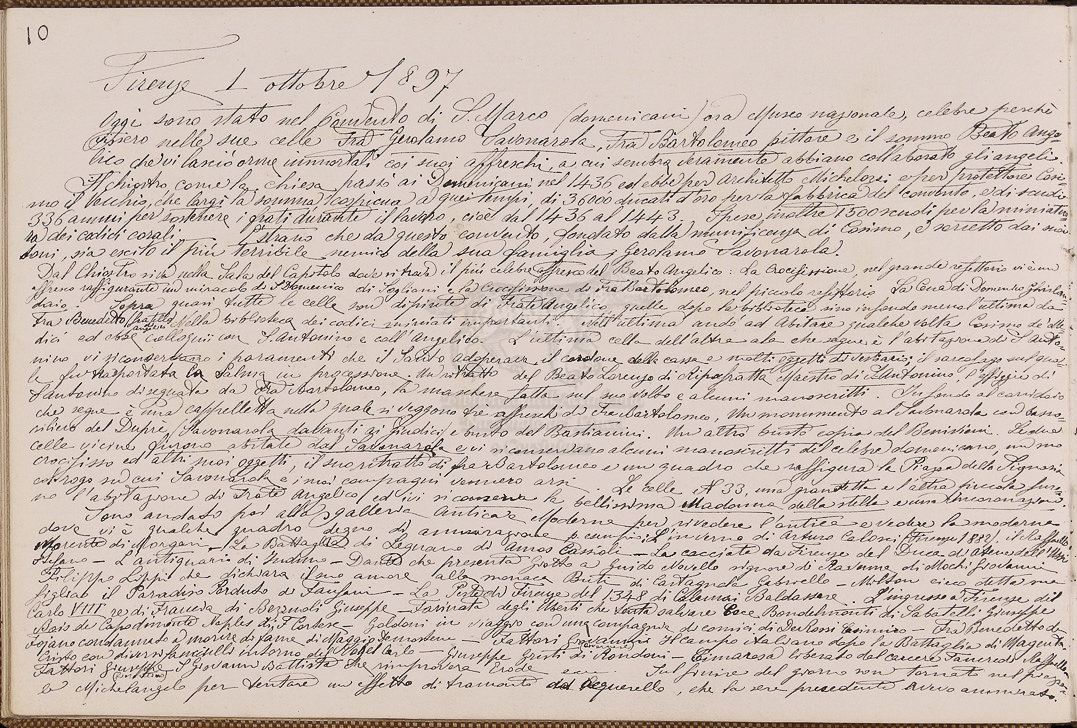 10
Firenze 1 ottobre 1897
Oggi sono stato nel Convento di S. Marco (domenicani) ora Museo nazionale, celebre perchè
vissero nelle sue celle Frà Gerolamo Savonarola, Frà Bartolomeo pittore e il sommo Beato Ange-
lico che vi lasciò orme immortali coi suoi affreschi a cui sembra veramente abbiano collaborato gli angeli.
Il chiostro, come la chiesa passò ai Domenicani nel 1436 ed ebbe per architetto Michelozzi e per protettore Cosi-
mo il Vecchio, che largì la somma cospicua a quei tempi, di 36000 ducati d'oro per la fabbrica del convento, e di scudi
336 annui per sostenere i frati durante il lavoro, cioè dal 1436 al 1443. Spese inoltre 1500 scudi per la miniatu-
ra dei codici corali. Strano che da questo convento, fondato dalla munificenza di Cosimo, e sorretto dai suoi
doni, sia escito il più terribile nemico della sua famiglia, Gerolamo Savonarola!
Dal Chiostro si va nella Sala del Capitolo dove si trova il più celebre affresco del Beato Angelico: la Crocifissione, nel grande refettorio vi è un
affresco raffigurante un miracolo di S. Domenico di Sogliani e la Crocifissione di Fra Bartolomeo, nel piccolo refettorio La Cena di Domenico Ghirlan-
daio. Sopra quasi tutte le celle son dipinte di Frate Angelico quelle dopo la biblioteca sino in fondo meno l'ultima da
Fra Benedetto fratello Nella biblioteca dei codici miniati importanti. Nell'ultima andò ad abitare qualche volta Cosimo de' Me-
dici ed ebbe colloqui con S. Antonino e coll'Angelico. L'ultima cella dell'altra ala che segue è l'abitazione di S. Anto-
nino vi si conservano i paramenti che il Santo adoperava, il cordone della cassa e molti oggetti di vestiario, il sarcofago sul qua-
le fu trasportata la salma in processione. Un ritratto del Beato Lorenzo di Ripafratta Maestro di S. Antonino, l'effigie di
S. Antonino disegnata da Fra Bartolomeo, la maschera fatta sul suo volto e alcuni manoscritti In fondo al corridoio
che segue è una cappelletta nella quale si veggono tre affreschi di Fra Bartolomeo, Un monumento al Savonarola con basso-
rilievo del Duprè (Savonarola dallanti ai giudici) e busto del Bastianini. Un altro busto copia del Benivieni. Le due
celle vicine furono abitate dal Savonarola e vi si conservano alcuni manoscritti del celebre domenicano, un suo
crocifisso ed altri suoi oggetti, il suo ritratto di fra Bartolomeo e un quadro che raffigura la Piazza della Signoria
col rogo su cui Savonarola e i suoi compagni vennero arsi Le celle N 33, una grandetta e l'altra piccola furo-
no l'abitazione di Frate Angelico, ed ivi si conserva la bellissima Madonna della stella e una Incoronazione.
Sono andato poi alla galleria Antica e Moderna per rivedere l'antica e vedere la moderna
dove vi è qualche quadro degno di ammirazione p. esempio: L'inverno di Arturo Calosci (Firenze 1882). il Raffaello
Morente di Morgari - La Battaglia di Legnano di Amos Cassioli - La cacciata da Firenze del Duca d'Atene dell'Ussi
Stefano - L'antiquario di Induno - Dante che presenta Giotto a Guido Novello signore di Ravenna di Mochi Giovanni
Filippo Lippi che dichiara il suo amore alla monaca Buti di Castagnola Gabriello - Milton cieco detta alla
figlia il Paradiso Perduto di Fanfani - La Peste di Firenze del 1348 di Calamai Baldassare. L'ingresso a Firenze di
Carlo VIII re di Francia di Bezzuoli Giuseppe - Farinata degli Uberti che salvare Cece Bondelmonti di Sabatelli Giuseppe
Bois de Capodimonte Naples di F. Cortese - Goldoni in viaggio con una compagnia di comici di De Rossi - Fra Benedetto da
Fojano condannato a morire di fame di Maggio - Fattori Giovanni Il campo italiano dopo la Battaglia di Magenta
Cristo con intorno di Vogel Carlo - Giuseppe Giusti di Rondoni - Cimarosa liberato dal carcere Tancredi Raffaello
Fattori Giuseppe - S. Giovanni Battista che rimprovera Erode Sul finire del giorno son tornato nel piazza-
le Michelangelo per tentare un effetto di tramonto ad acquerello, che la sera precedente avevo ammirato.